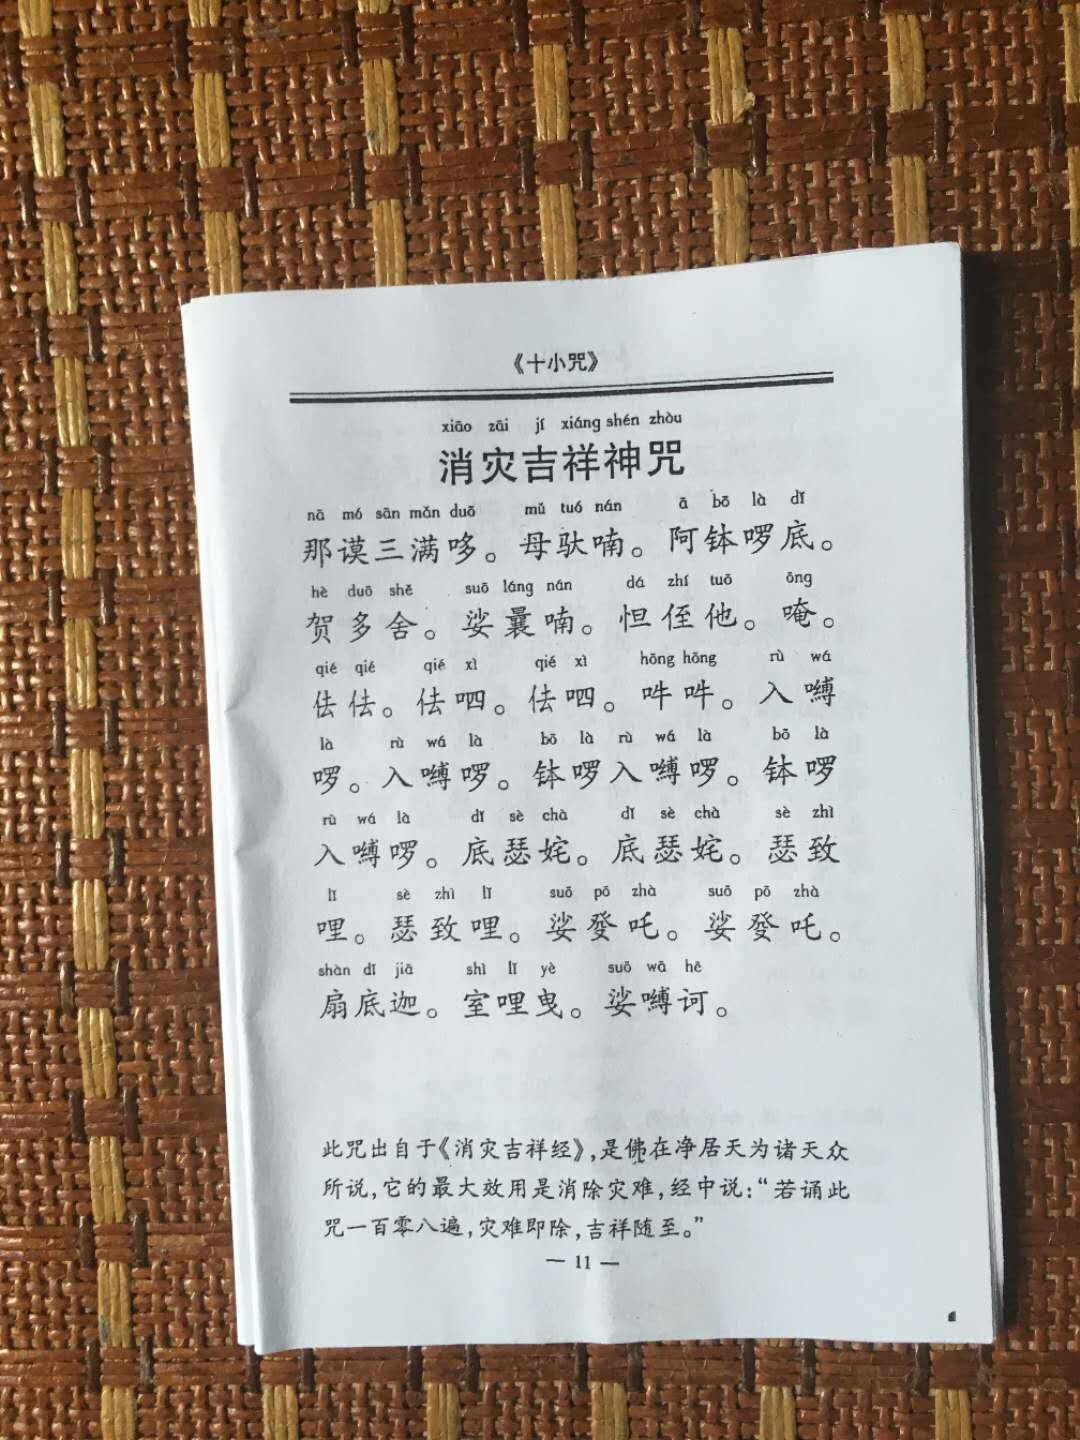 《十小咒》
xiāo zāi jí xiáng shén zhòu
消灾吉祥神咒
nā mó sān mǎn duō mǔ tuó nán ā bō là dǐ
那谟三满哆。母驮喃。阿钵啰底。
hè duō shě suō láng nán dá zhí tuō ōng
贺多舍。娑曩喃。怛侄他。唵。
qié qié qié xì qié xì hōng hōng rù wá
佉佉。佉呬。佉呬。吽吽。入嚩
là rù wá là bō là rù wá là bō là
啰。入嚩啰。钵啰入嚩啰。钵啰
rù wá là dǐ sè chà dǐ sè chà sè zhì
入嚩啰。底瑟姹。底瑟姹。瑟致
lī sè zhì lī suō pō zhà suō pō zhà
哩。瑟致哩。娑癹吒。娑癹吒。
shàn dǐ jiā shì lī yè suō wā hē
扇底迦。室哩曳。娑嚩诃。
此咒出自于《消灾吉祥经》,是佛在净居天为诸天众
所说,它的最大效用是消除灾难,经中说:“若诵此
咒一百零八遍,灾难即除,吉祥随至。”
— 11 —